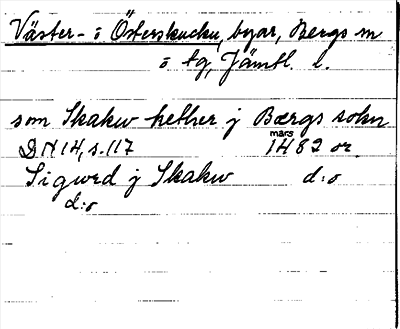 Väster- o Österskucku, byar, Bergs sn
o tg, Jämtl. l.
som Skakw hether j Bærgs sokn
DN 14, s. 117 mars 1482 or.
Sigwrd j Skakw d:o
d:o